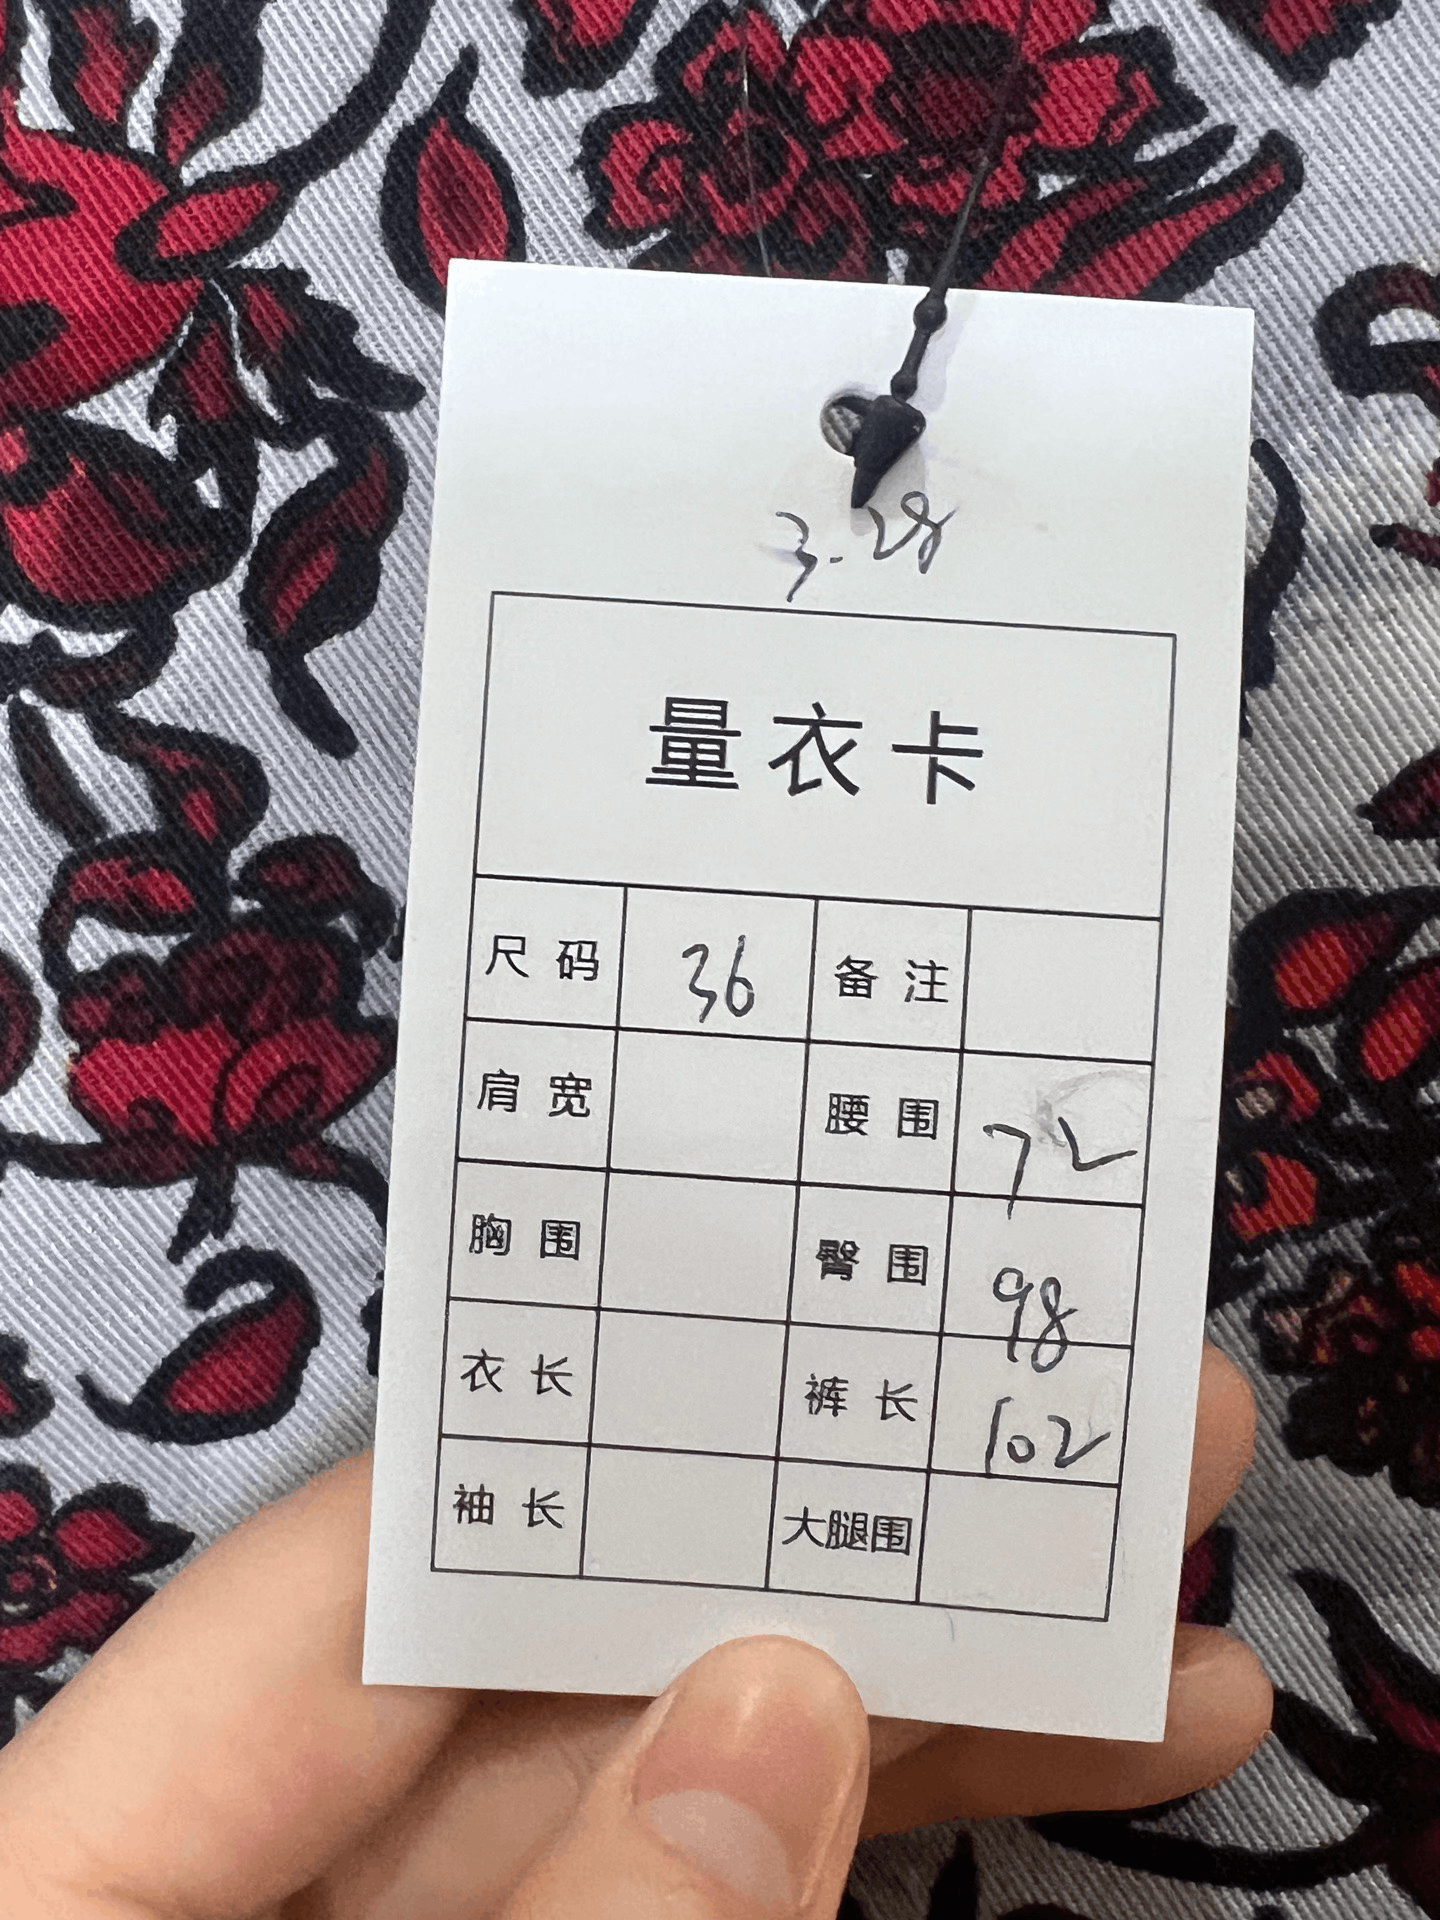 3.28
量衣卡
尺码 36 备注
肩宽 腰围 72
胸围 臀围 98
衣长 裤长 102
袖长 大腿围